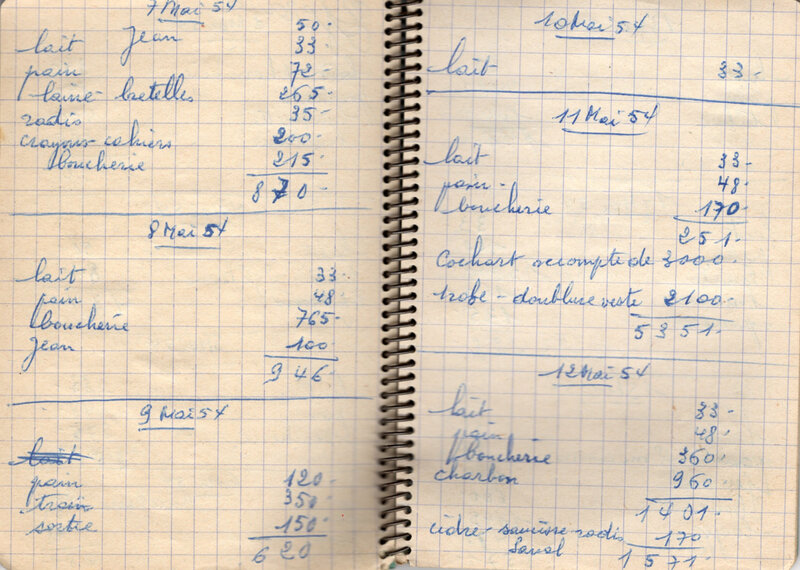 7 Mai 54
Jean 50-
lait 33-
pain 72-
laine - bretelles 265-
radis 35-
crayons-cahiers 200-
boucherie 215-
870-
8 Mai 54
lait 33-
pain 48-
boucherie 765-
Jean 100-
946-
9 Mai 54
lait
pain 120-
train 350-
sortie 150-
620
10 Mai 54
lait 33-
11 Mai 54
lait 33-
pain - 48-
boucherie 170-
251-
Cochart acompte de 3000-
robe - doublure veste 2100-
5351-
12 Mai 54
lait 33-
pain 48-
boucherie 360-
charbon 960-
1401-
cidre - saucisse - radis 170-
1571-